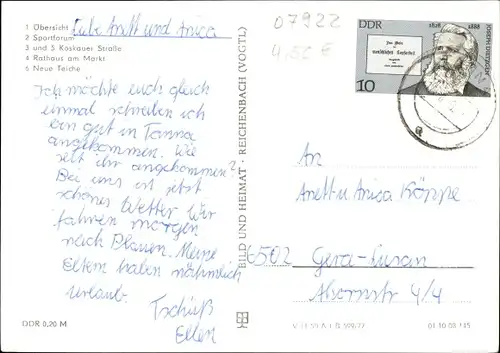 1 Übersicht
2 Sportforum
3 und 5 Koskauer Straße
4 Rathaus am Markt
6 Neue Teiche
Liebe Anett und Anica
Ich möchte euch gleich
einmal schreiben ich
bin gut in Tanna
angekommen. Wie
seit ihr angekommen?
Bei uns ist jetzt
schönes Wetter Wir
fahren morgen
nach Plauen. Meine
Eltern haben nähmlich
Urlaub.
Tschüß
Ellen
DDR 0,20 M
BILD UND HEIMAT · REICHENBACH (VOGTL)
07922
4,50 €
DDR
1828 1888
10
An
Anett u Anica Köppe
6502 Gera-Lusan
4/4